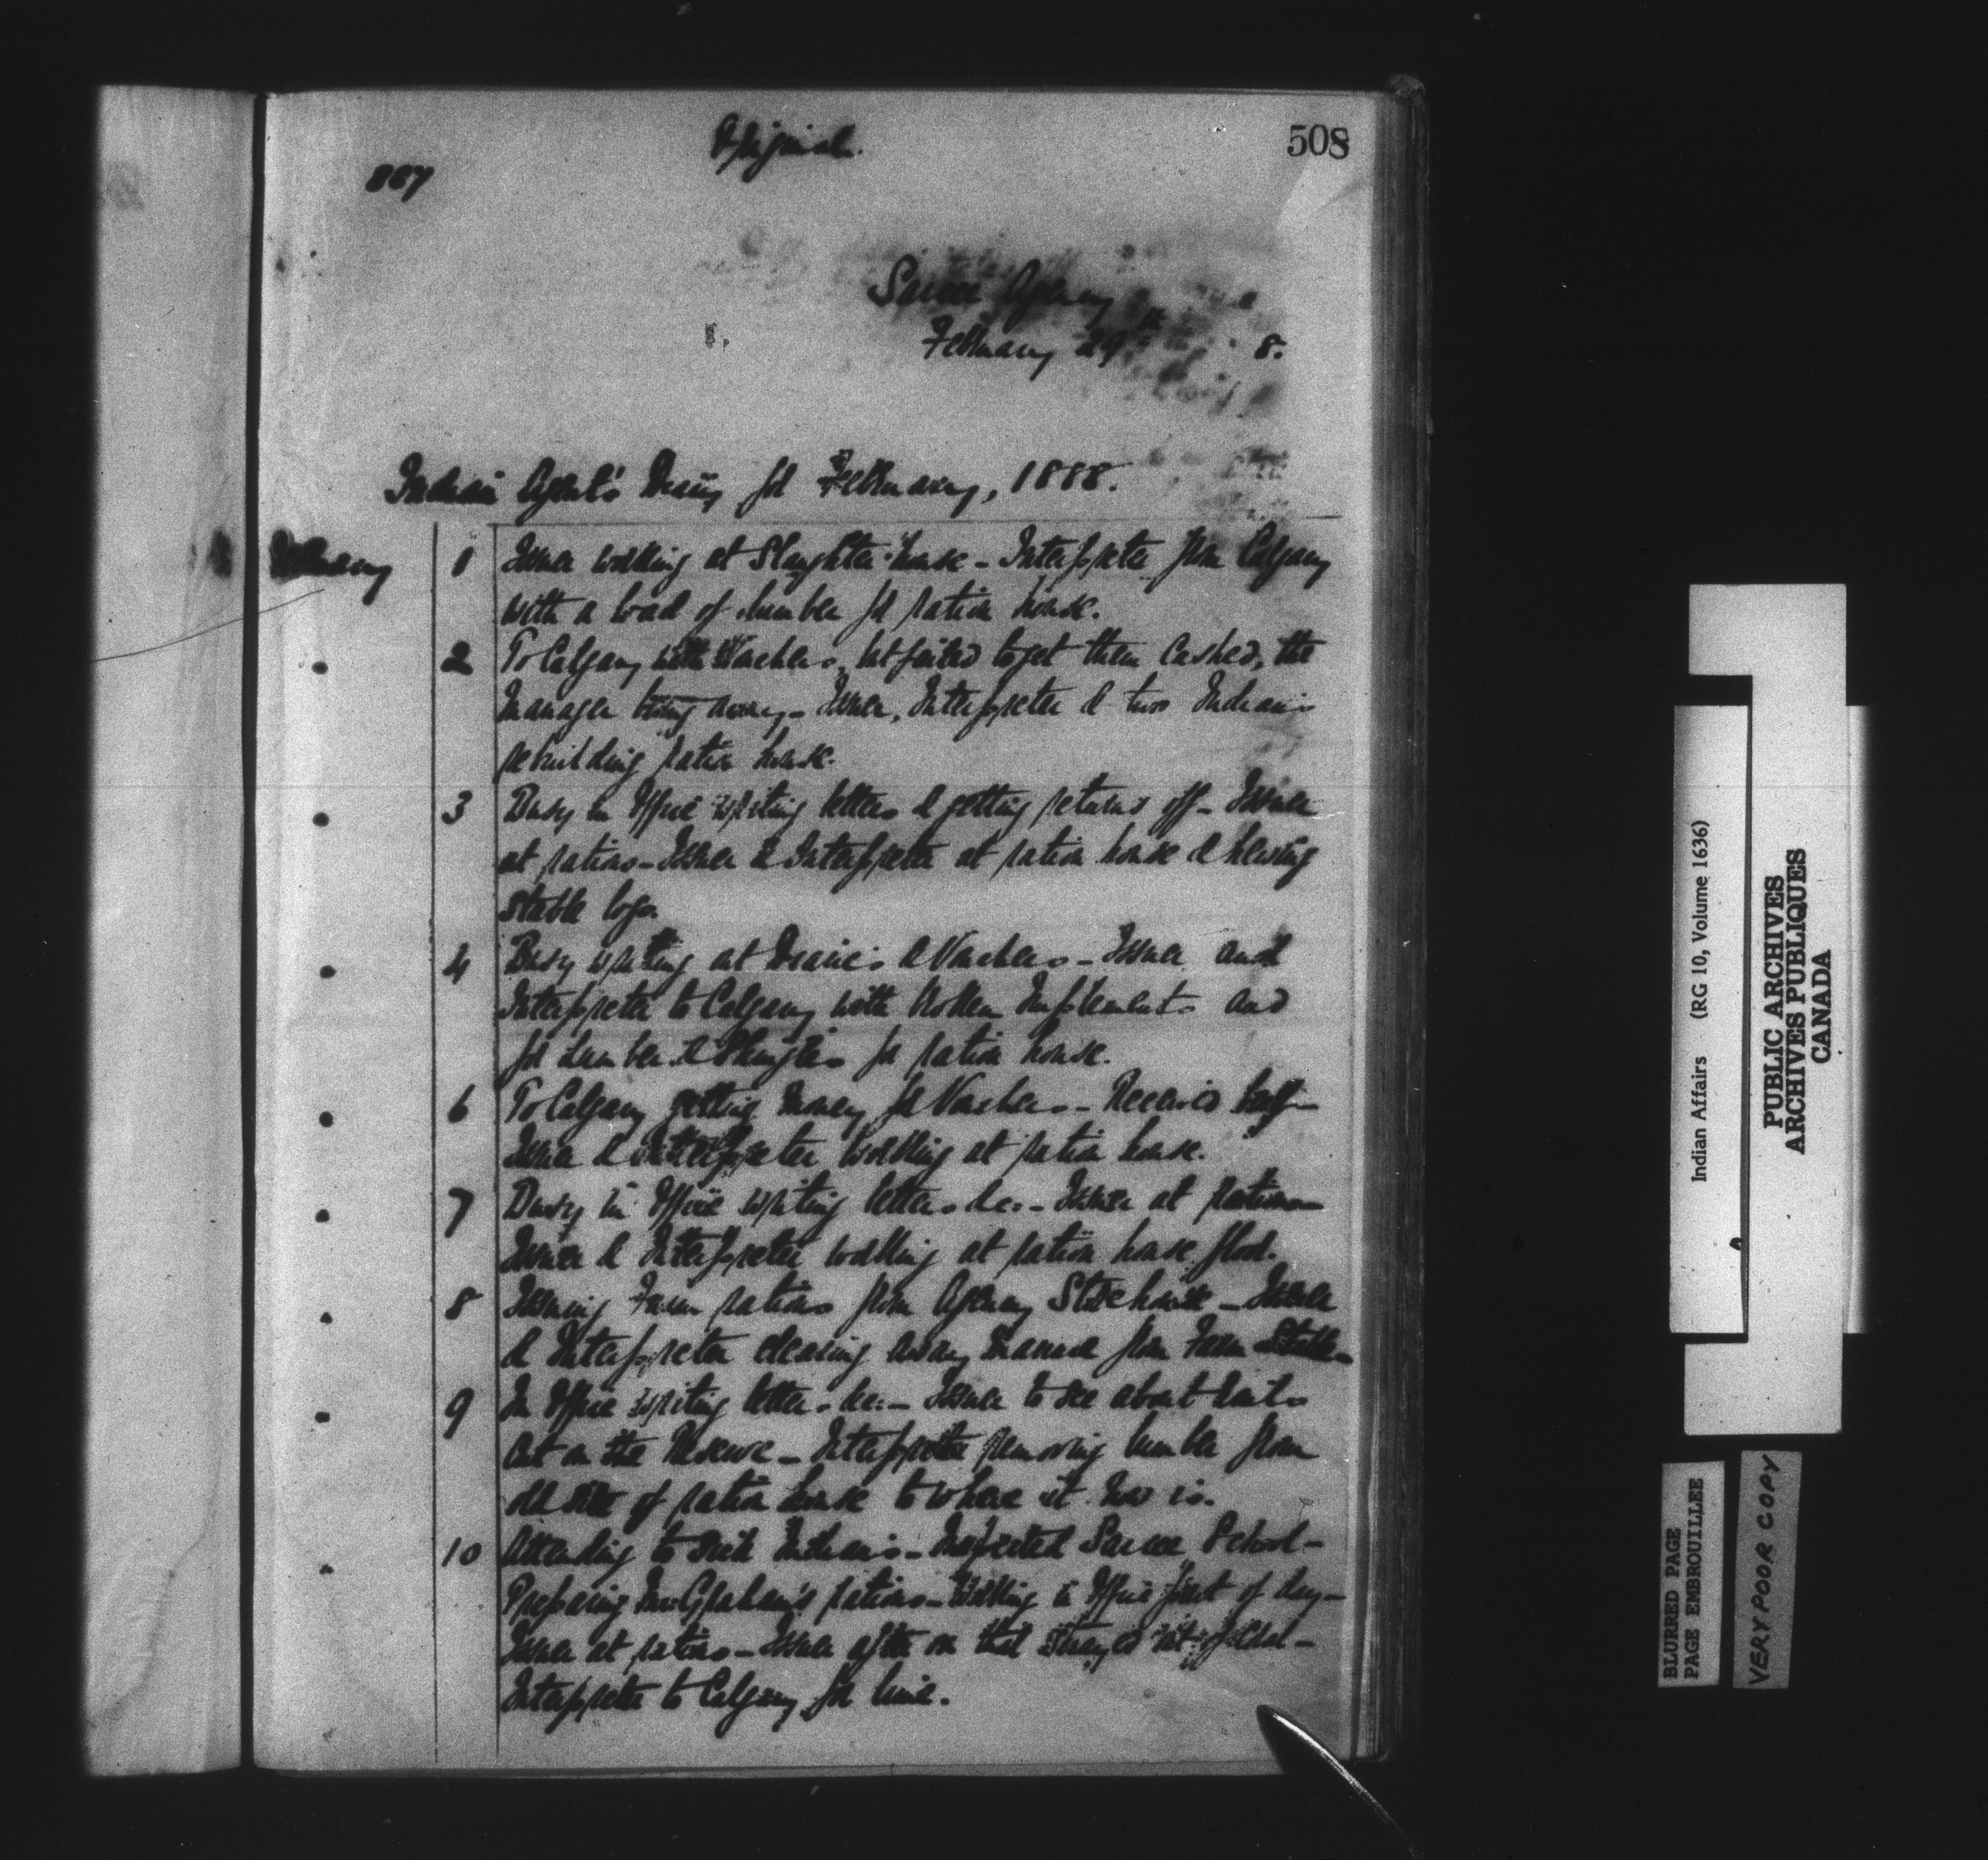 Original.
508
887
Sarcee Agency
February 29th 8.
Indian Agent's Diary for February, 1888.
February 1 Issuer working at Slaughter house - Interpreter from Calgary
with a load of lumber for ration house.
2 To Calgary with Vouchers, but failed to get them cashed, the
Manager being away - Issuer, Interpreter & two Indians
rebuilding ration house.
3 Busy in Office writing letters & getting returns off - Issuer
at rations - Issuer & Interpreter at ration house & hewing
stable logs.
4 Busy writing at Diaries & Vouchers - Issuer and
Interpreter to Calgary with broken Implements and
for lumber & Shingles for ration house.
6 To Calgary getting money for Vouchers - Received beef -
Issuer & Interpreter working at ration house.
7 Busy in Office writing letters &c. - Issuer at rations -
Issuer & Interpreter working at ration house floor.
8 Issuing Farm rations from Agency Storehouse - Issuer
& Interpreter clearing away manure from Farm Stable -
9 In Office writing letters &c. - Issuer to see about
out on the Reserve - Interpreter removing lumber from
old site of ration house to where it now is.
10 Attending to sick Indians - Inspected Sarcee School -
Preparing rations - Working in Office part of day -
Issuer at rations - Issuer after on that
Interpreter to Calgary for lime.
Indian Affairs (RG 10, Volume 1636)
PUBLIC ARCHIVES
ARCHIVES PUBLIQUES
CANADA
BLURED PAGE
PAGE EMBROUILLEE
VERY POOR COPY